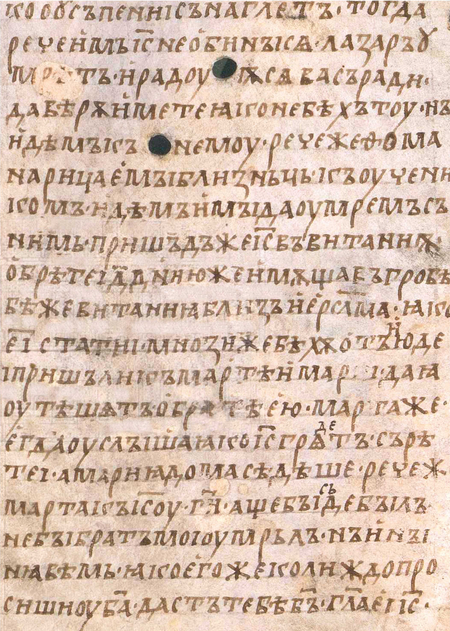 ко о усъпениі съна глетъ· тогда
рече имъ іс҃ не обинъі сѧ· лазаръ ѹ
мрѣтъ· и радоуѭ сѧ васъ ради·
да вѣрѫ имете ꙗко не бѣхъ тоу· нъ
идѣмъ къ немоу· рече же ѳома
нарицаемъі близньць къ оучени
комъ· идѣмъ и мъі да оумремъ съ
нимь· пришъдъ же іс҃ въ витаниѭ·
обрѣте і д҃ дни юже имѫща въ гробѣ
бѣ же витаниꙗ близъ иерс҃лма· ꙗко
е҃і статиі· мнози же бѣхѫ отъ июде
і пришъли къ мартѣ и марии да ꙗ
оутѣшѧтъ о братѣ ею· марта же·
егда оуслъіша ꙗко іс҃ грѧдетъ· сърѣ
те і· а мариꙗ дома сѣдѣше· рече ж
марта къ іс҃оу· г҃и· аще бъі сьде бъілъ
не бъі братъ моі оумрьлъ· нъ и нъі
нꙗ вѣмь· ꙗко егоже колиждо про
сиши оу б҃а· дастъ тебѣ б҃ъ· г҃ла еі іс҃·